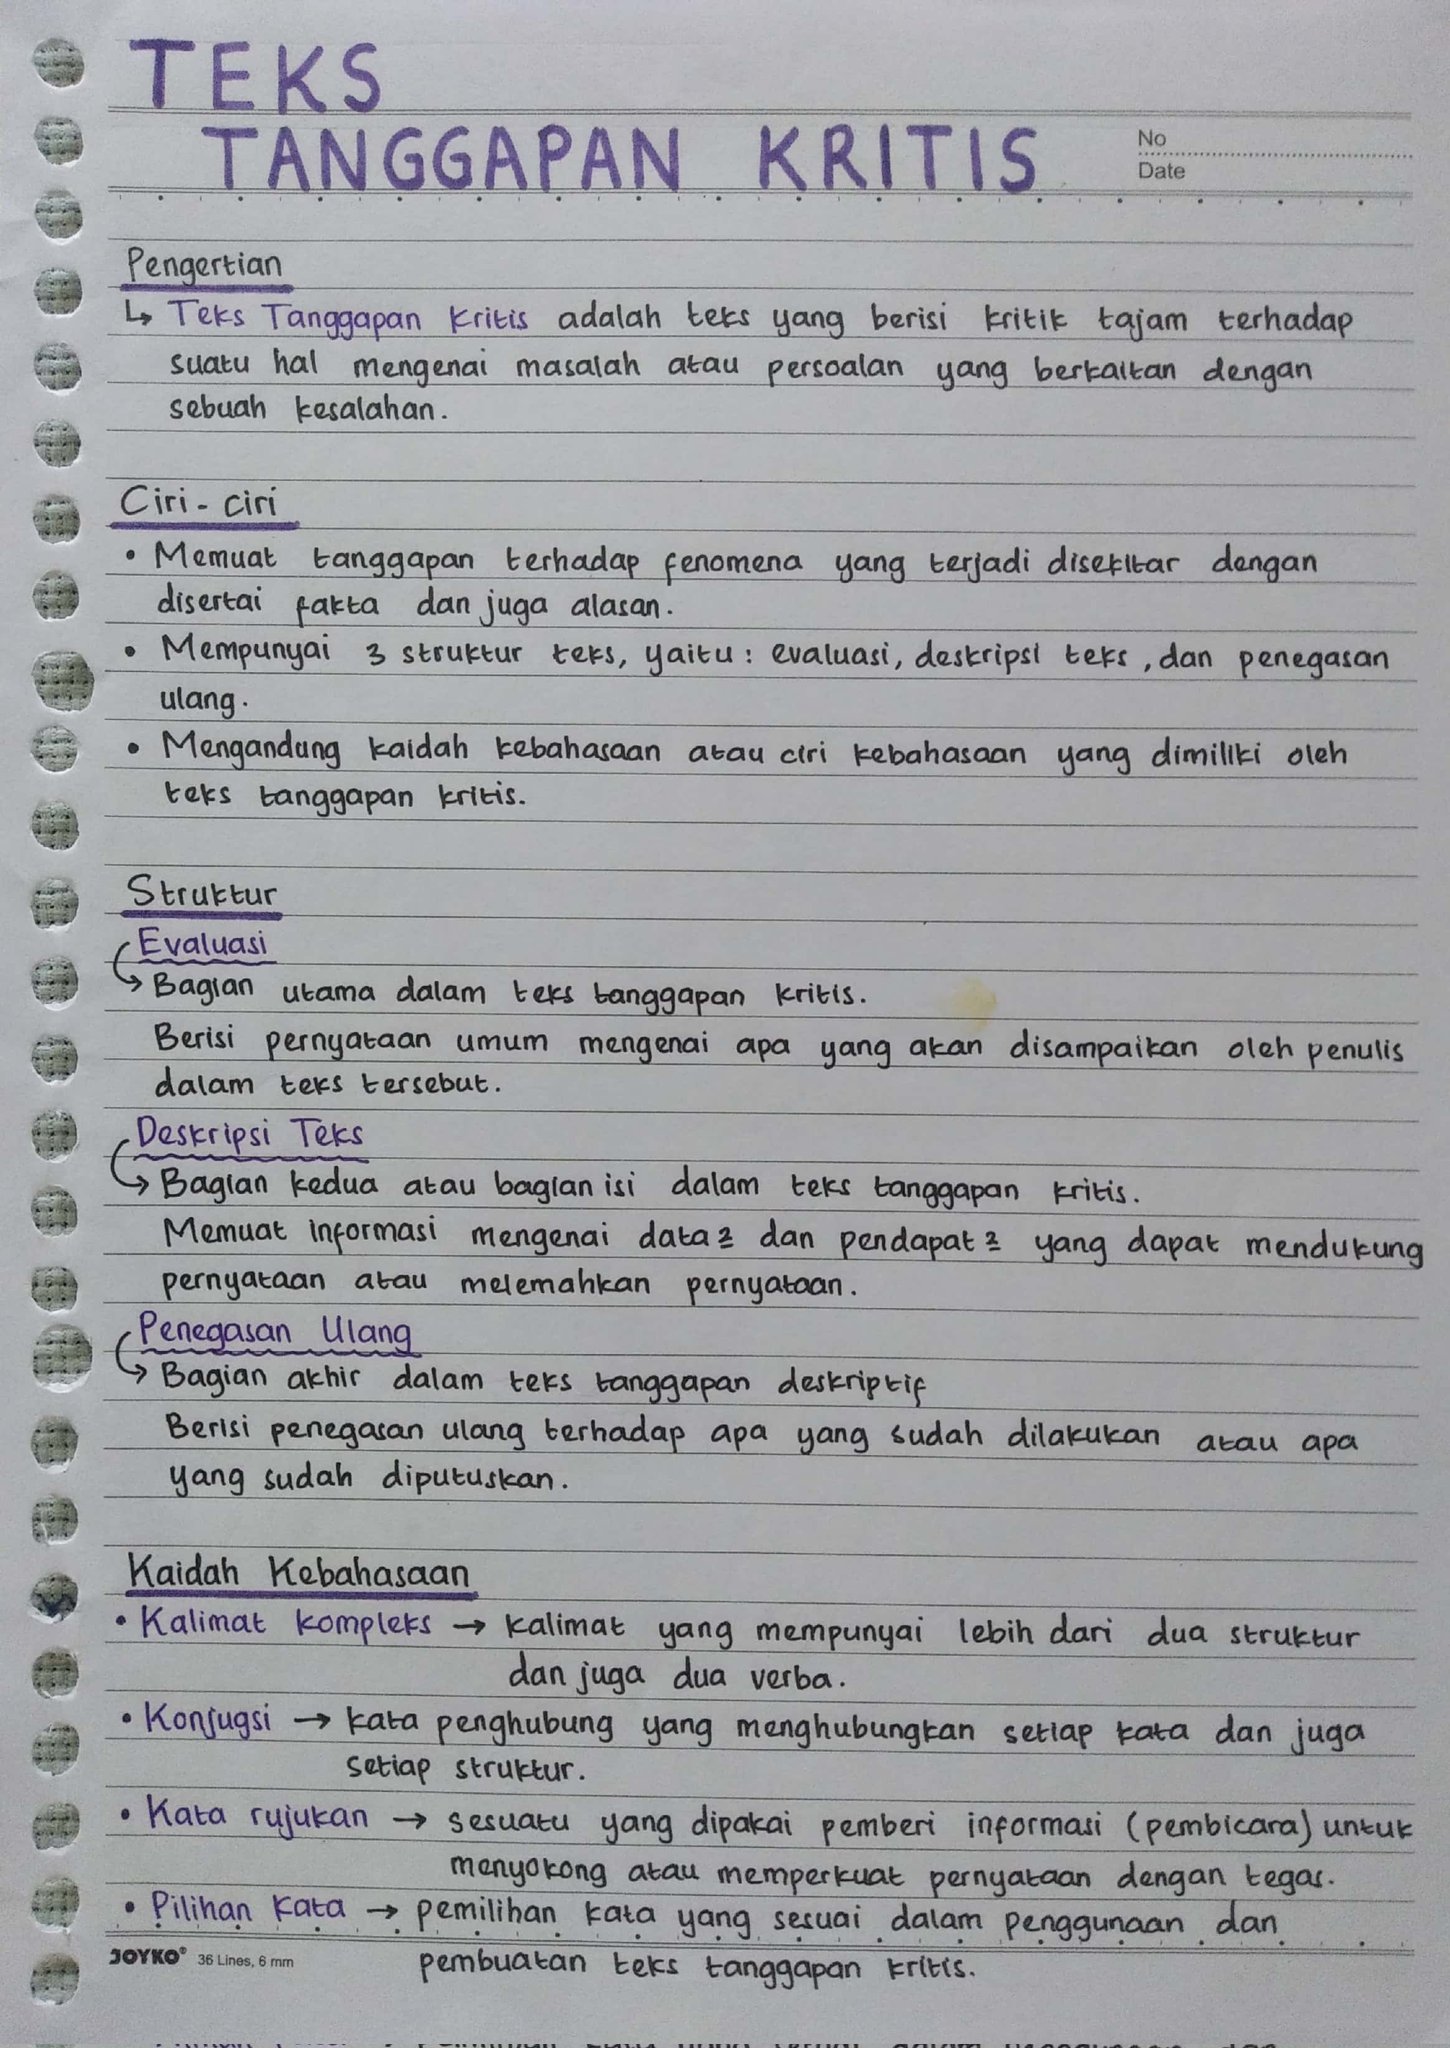 TEKS
TANGGAPAN KRITIS
No
Date
Pengertian
↳ Teks Tanggapan Kritis adalah teks yang berisi kritik tajam terhadap
suatu hal mengenai masalah atau persoalan yang berkaitan dengan
sebuah kesalahan.
Ciri-ciri
• Memuat tanggapan terhadap fenomena yang terjadi disekitar dengan
disertai fakta dan juga alasan.
• Mempunyai 3 struktur teks, yaitu: evaluasi, deskripsi teks, dan penegasan
ulang.
• Mengandung kaidah kebahasaan atau ciri kebahasaan yang dimiliki oleh
teks tanggapan kritis.
Struktur
Evaluasi
→ Bagian utama dalam teks tanggapan kritis.
Berisi pernyataan umum mengenai apa yang akan disampaikan oleh penulis
dalam teks tersebut.
Deskripsi Teks
→ Bagian kedua atau bagian isi dalam teks tanggapan kritis.
Memuat informasi mengenai data2 dan pendapat2 yang dapat mendukung
pernyataan atau melemahkan pernyataan.
Penegasan Ulang
→ Bagian akhir dalam teks tanggapan deskriptif
Berisi penegasan ulang terhadap apa yang sudah dilakukan atau apa
yang sudah diputuskan.
Kaidah Kebahasaan
• Kalimat kompleks → kalimat yang mempunyai lebih dari dua struktur
dan juga dua verba.
• Konjugsi → kata penghubung yang menghubungkan setiap kata dan juga
setiap struktur.
• Kata rujukan → sesuatu yang dipakai pemberi informasi (pembicara) untuk
menyokong atau memperkuat pernyataan dengan tegas.
• Pilihan Kata → pemilihan kata yang sesuai dalam penggunaan dan
JOYKO® 36 Lines, 6 mm
pembuatan teks tanggapan kritis.